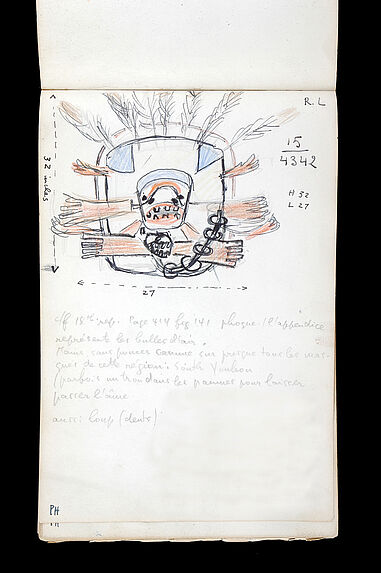 R. L
15
4342
32 inches
H 32
L 27
27
cff 15th rep. Page 414 fig 141 phoque : l'appendice
représente les bulles d'air.
Mains sans pouces comme sur presque tous les mas-
ques de cette région : South Youkon
(parfois un trou dans les paumes pour laisser
passer l'âme
aussi loup (dents)
PH